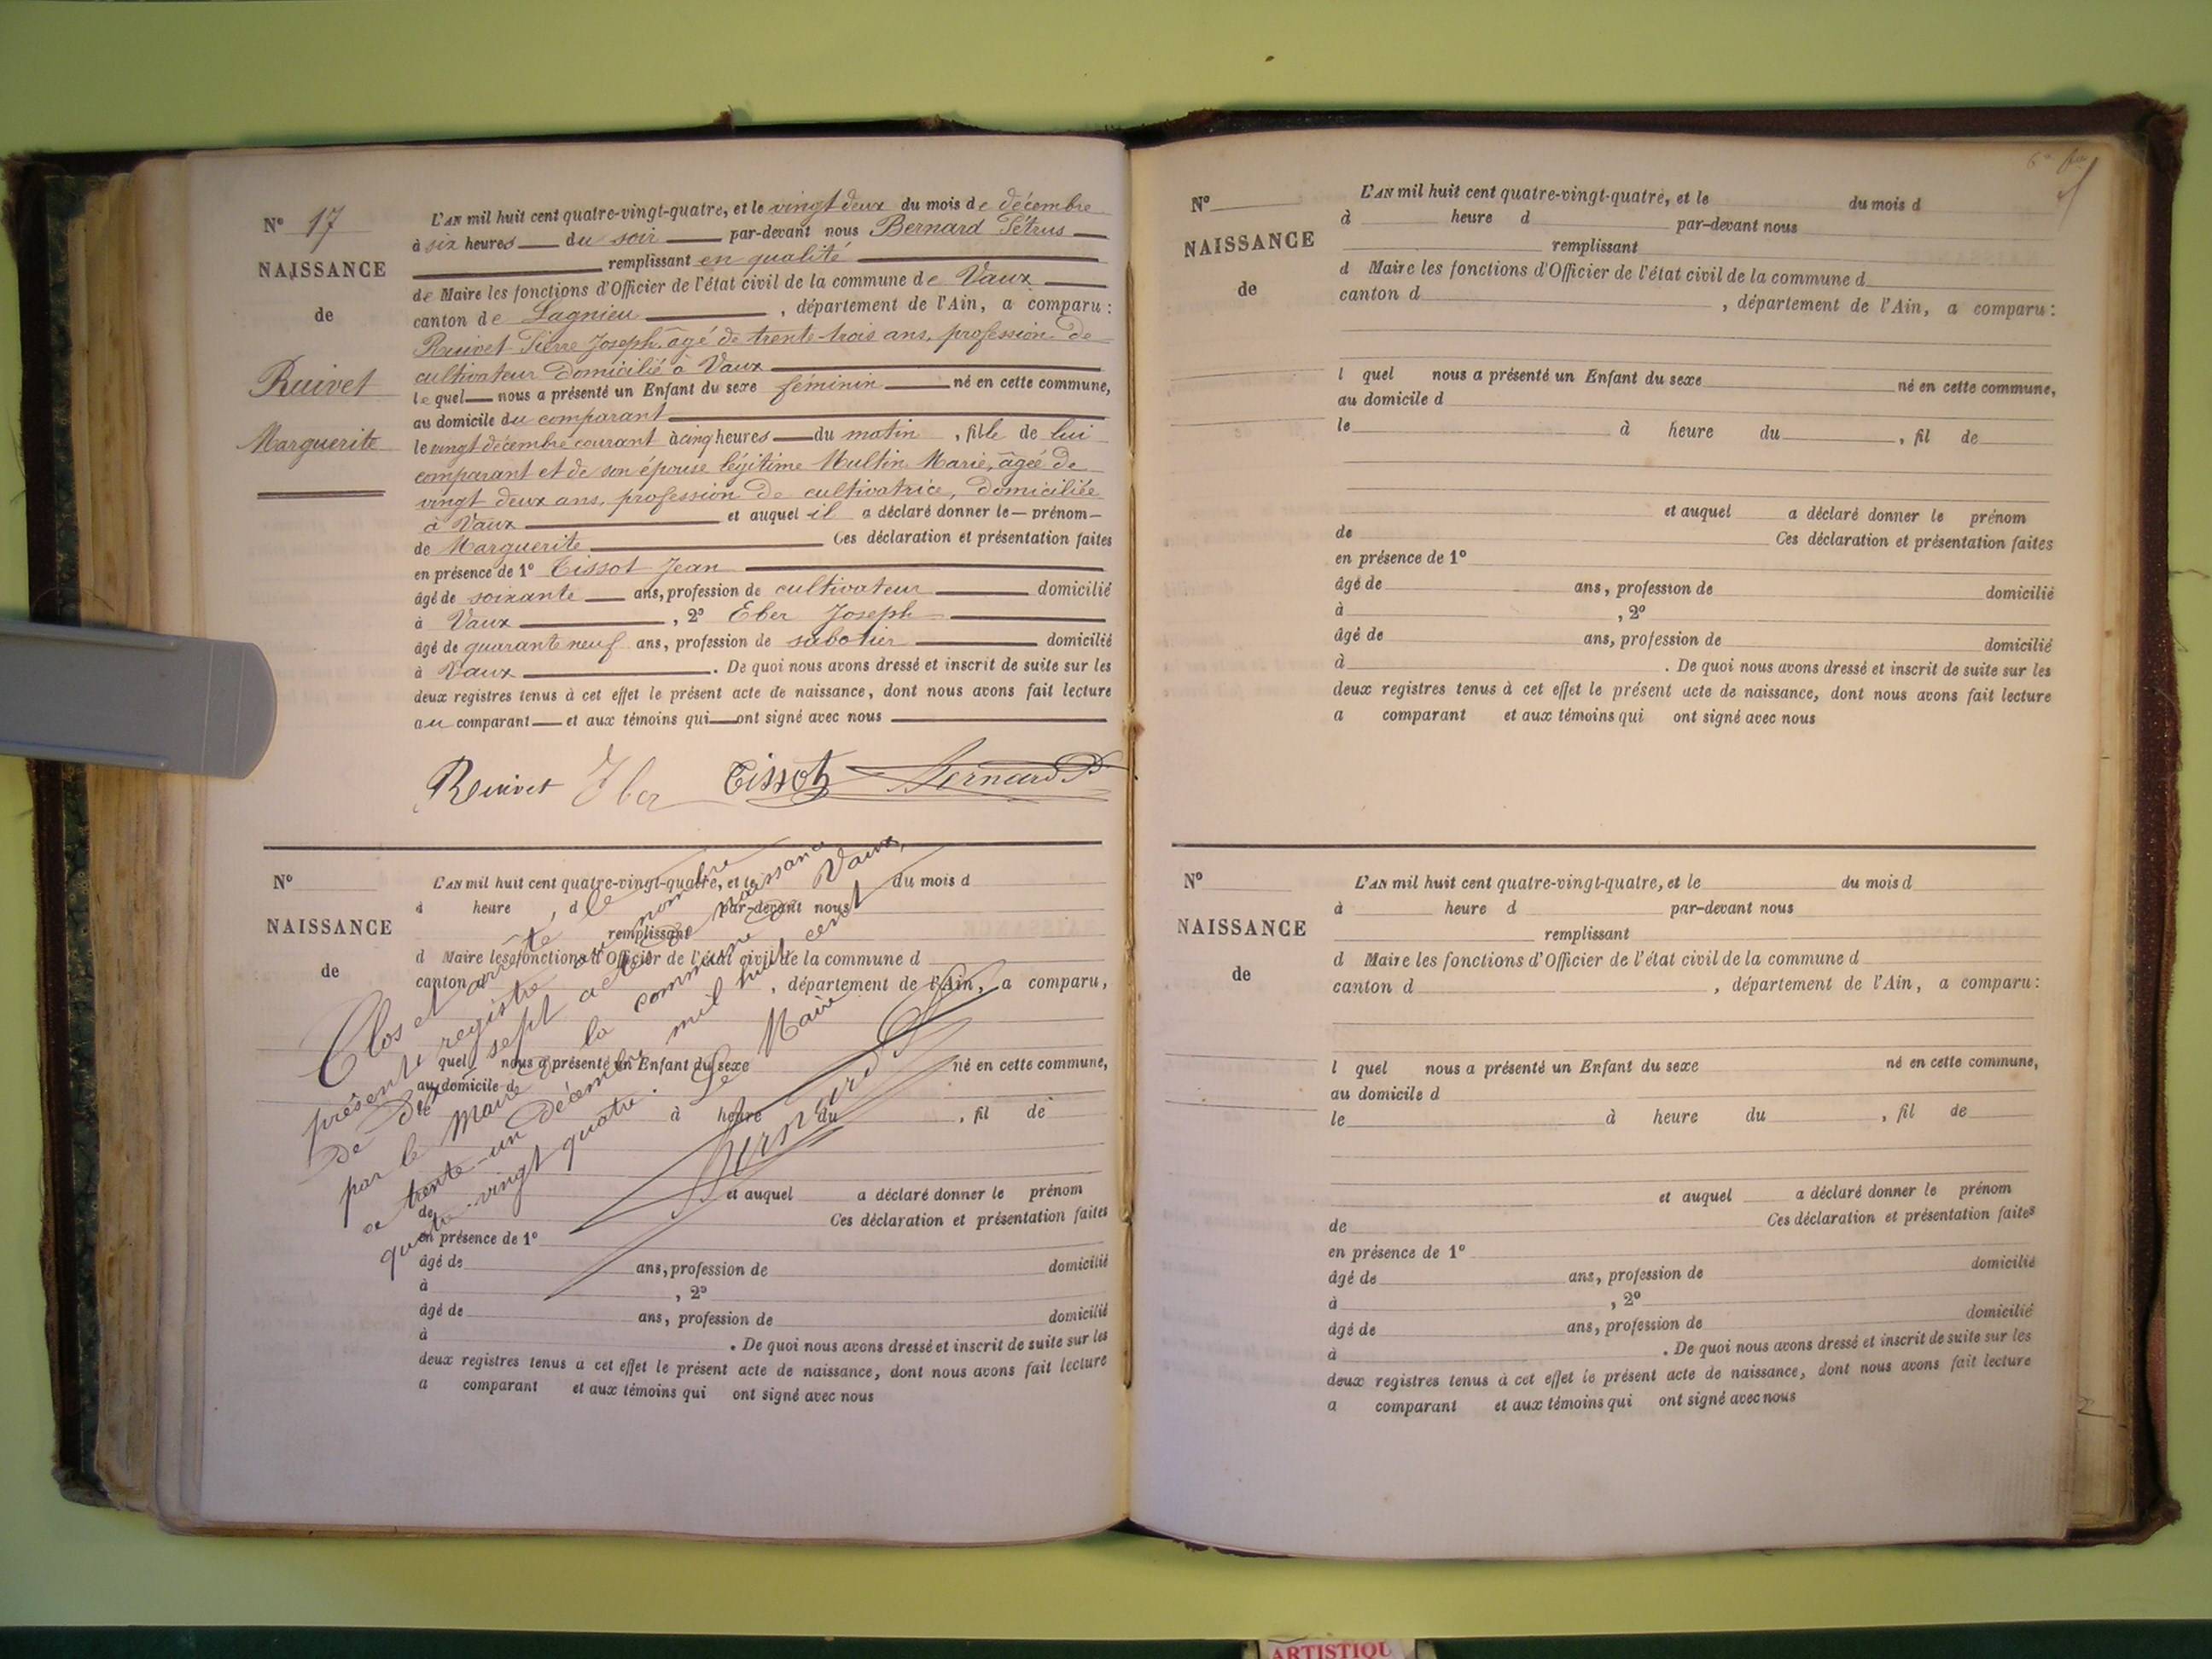 N° 17
NAISSANCE
de
Ruivet
Marguerite
L'AN mil huit cent quatre-vingt-quatre, et le vingt deux du mois de décembre
à six heures du soir par-devant nous Bernard Pétrus
remplissant en qualité
de Maire les fonctions d'Officier de l'état civil de la commune de Vaux
canton de Lagnieu, département de l'Ain, a comparu :
Ruivet Pierre Joseph, âgé de trente-trois ans, profession de
cultivateur domicilié à Vaux
lequel nous a présenté un Enfant du sexe féminin né en cette commune,
au domicile du comparant
le vingt décembre courant à cinq heures du matin, fille de lui
comparant et de son épouse légitime Multin Marie, âgée de
vingt deux ans, profession de cultivatrice, domiciliée
à Vaux et auquel il a déclaré donner le prénom
de Marguerite Ces déclaration et présentation faites
en présence de 1° Tissot Jean
âgé de soixante ans, profession de cultivateur domicilié
à Vaux, 2° Eber Joseph
âgé de quarante neuf ans, profession de sabotier domicilié
à Vaux. De quoi nous avons dressé et inscrit de suite sur les
deux registres tenus à cet effet le présent acte de naissance, dont nous avons fait lecture
au comparant et aux témoins qui ont signé avec nous
Ruivet Eber Tissot Bernard P
N°
NAISSANCE
de
L'AN mil huit cent quatre-vingt-quatre, et le du mois d
à heure, d par-devant nous
remplissant
d Maire les fonctions d'Officier de l'état civil de la commune d
canton d, département de l'Ain, a comparu,
quel nous a présenté un Enfant du sexe né en cette commune,
au domicile d
le à heure du, fil de
et auquel a déclaré donner le prénom
de Ces déclaration et présentation faites
en présence de 1°
âgé de ans, profession de domicilié
à, 2°
âgé de ans, profession de domicilié
à. De quoi nous avons dressé et inscrit de suite sur les
deux registres tenus a cet effet le présent acte de naissance, dont nous avons fait lecture
a comparant et aux témoins qui ont signé avec nous
Clos et arrêté, le
présent registre au nombre
de dix sept actes de naissance
par le Maire de la commune de Vaux,
ce trente-un décembre mil huit cent
quatre-vingt quatre. Le Maire
Bernard P
N°
NAISSANCE
de
L'AN mil huit cent quatre-vingt-quatre, et le du mois d
à heure d par-devant nous
remplissant
d Maire les fonctions d'Officier de l'état civil de la commune d
canton d, département de l'Ain, a comparu :
l quel nous a présenté un Enfant du sexe né en cette commune,
au domicile d
le à heure du, fil de
et auquel a déclaré donner le prénom
de Ces déclaration et présentation faites
en présence de 1°
âgé de ans, profession de domicilié
à, 2°
âgé de ans, profession de domicilié
à. De quoi nous avons dressé et inscrit de suite sur les
deux registres tenus à cet effet le présent acte de naissance, dont nous avons fait lecture
a comparant et aux témoins qui ont signé avec nous
N°
NAISSANCE
de
L'AN mil huit cent quatre-vingt-quatre, et le du mois d
à heure d par-devant nous
remplissant
d Maire les fonctions d'Officier de l'état civil de la commune d
canton d, département de l'Ain, a comparu :
l quel nous a présenté un Enfant du sexe né en cette commune,
au domicile d
le à heure du, fil de
et auquel a déclaré donner le prénom
de Ces déclaration et présentation faites
en présence de 1°
âgé de ans, profession de domicilié
à, 2°
âgé de ans, profession de domicilié
à. De quoi nous avons dressé et inscrit de suite sur les
deux registres tenus à cet effet le présent acte de naissance, dont nous avons fait lecture
a comparant et aux témoins qui ont signé avec nous
ARTISTIQU